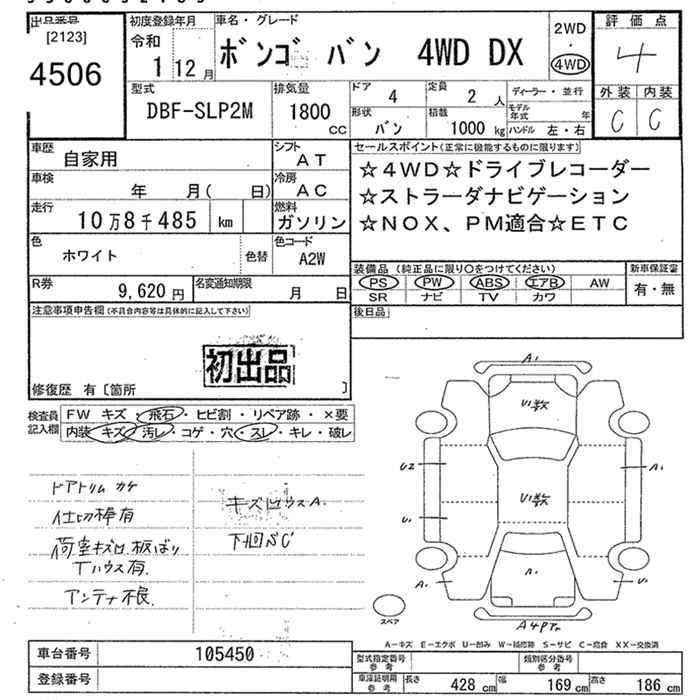 出品番号
[2123]
4506
初度登録年月
令和
1 12 月
車名・グレード
ボンゴ バン 4WD DX
2WD
・
4WD
評価点
4
外装 内装
C C
型式
DBF-SLP2M
排気量
1800
CC
ドア
4
定員
2 人
形状
バン
積載
1000 kg
ディーラー・並行
モデル年式 年
ハンドル 左・右
車歴
自家用
シフト
AT
車検
年 月( 日)
冷房
AC
走行
10万8千485 km
燃料
ガソリン
色
ホワイト
色替
色コード
A2W
R券
9,620 円
名変通知期限
月 日
セールスポイント(正常に機能するものに限ります)
☆4WD☆ドライブレコーダー
☆ストラーダナビゲーション
☆NOX、PM適合☆ETC
装備品 (純正品に限り○をつけてください)
PS PW ABS エアB AW
SR ナビ TV カワ
新車保証書
有・無
後日品
注意事項申告欄(不具合内容等は具体的に記入して下さい)
初出品
修復歴 有〔箇所 〕
検査員
記入欄
FW キズ・飛石・ヒビ割・リペア跡・×要
内装 キズ・汚レ・コゲ・穴・スレ・キレ・破レ
ドアトリム カケ
仕切棒有
荷室キズ凹 板ばり
Tハウス有
アンテナ不良
キズ凹ウスA.
下回S C
A1
U1数
U2
A1
U1
U1数
A1
A1
U1
A4PTr
スペア
A−キズ E−エクボ U−凹み W−補修跡 S−サビ C−腐食 XX−交換済
車台番号
105450
登録番号
型式指定番号
参考
類別区分番号
参考
車庫証明用
参考
長さ 428 cm 幅 169 cm 高さ 186 cm